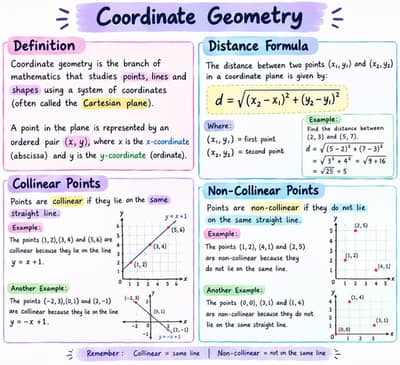 Coordinate Geometry
Definition
Coordinate geometry is the branch of
mathematics that studies points, lines and
shapes using a system of coordinates
(often called the Cartesian plane).
A point in the plane is represented by an
ordered pair (x, y), where x is the x-coordinate
(abscissa) and y is the y-coordinate (ordinate).
Distance Formula
The distance between two points (x₁, y₁) and (x₂, y₂)
in a coordinate plane is given by:
d = √(x₂ − x₁)² + (y₂ − y₁)²
Where:
(x₁, y₁) = first point
(x₂, y₂) = second point
Example:
Find the distance between
(2, 3) and (5, 7).
d = √(5 − 2)² + (7 − 3)²
= √3² + 4² = √9 + 16
= √25 = 5
Collinear Points
Points are collinear if they lie on the same
straight line.
Example:
The points (1, 2), (3, 4) and (5, 6) are
collinear because they lie on the line
y = x + 1.
y
y = x + 1
(5, 6)
(3, 4)
(1, 2)
x
Another Example:
The points (−2, 3), (0, 1) and (2, −1)
are collinear because they lie on the line
y = −x + 1.
y
(−2, 3)
(0, 1)
(2, −1)
x
y = −x + 1
Non-Collinear Points
Points are non-collinear if they do not lie
on the same straight line.
Example:
The points (1, 2), (4, 1) and (2, 5)
are non-collinear because they
do not lie on the same line.
y
(2, 5)
(1, 2)
(4, 1)
x
Another Example:
The points (0, 0), (3, 1) and (1, 4)
are non-collinear because they do not
lie on the same straight line.
y
(1, 4)
(3, 1)
(0, 0)
x
Remember: Collinear = same line | Non-collinear = not on the same line